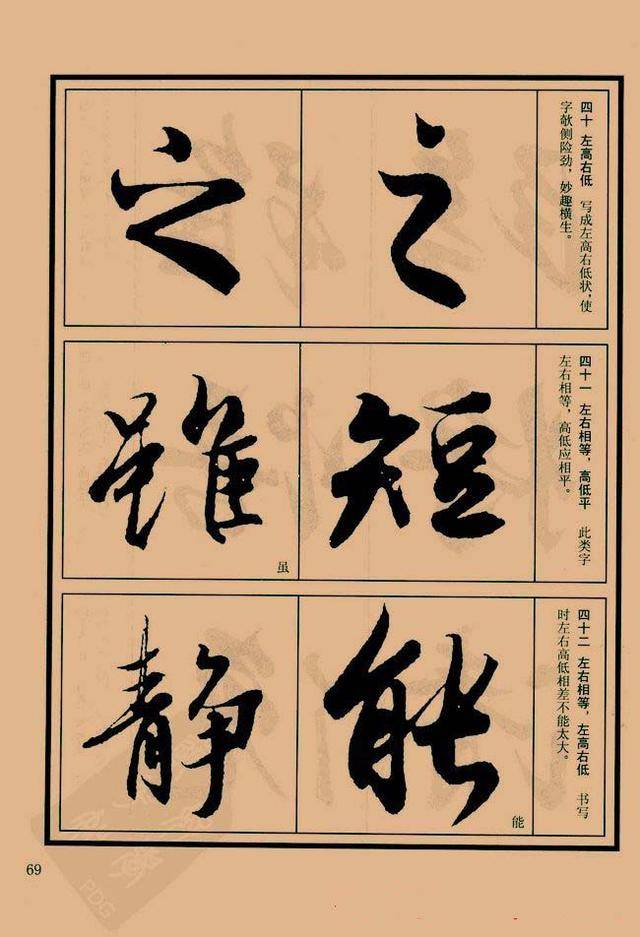 四十 左高右低 写成左高右低状，使
字欹侧险劲，妙趣横生。
之
之
四十一 左右相等，高低平 此类字
左右相等，高低应相平。
短
雖
虽
四十二 左右相等，左高右低 书写
时左右高低相差不能太大。
能
能
静
69
PDG